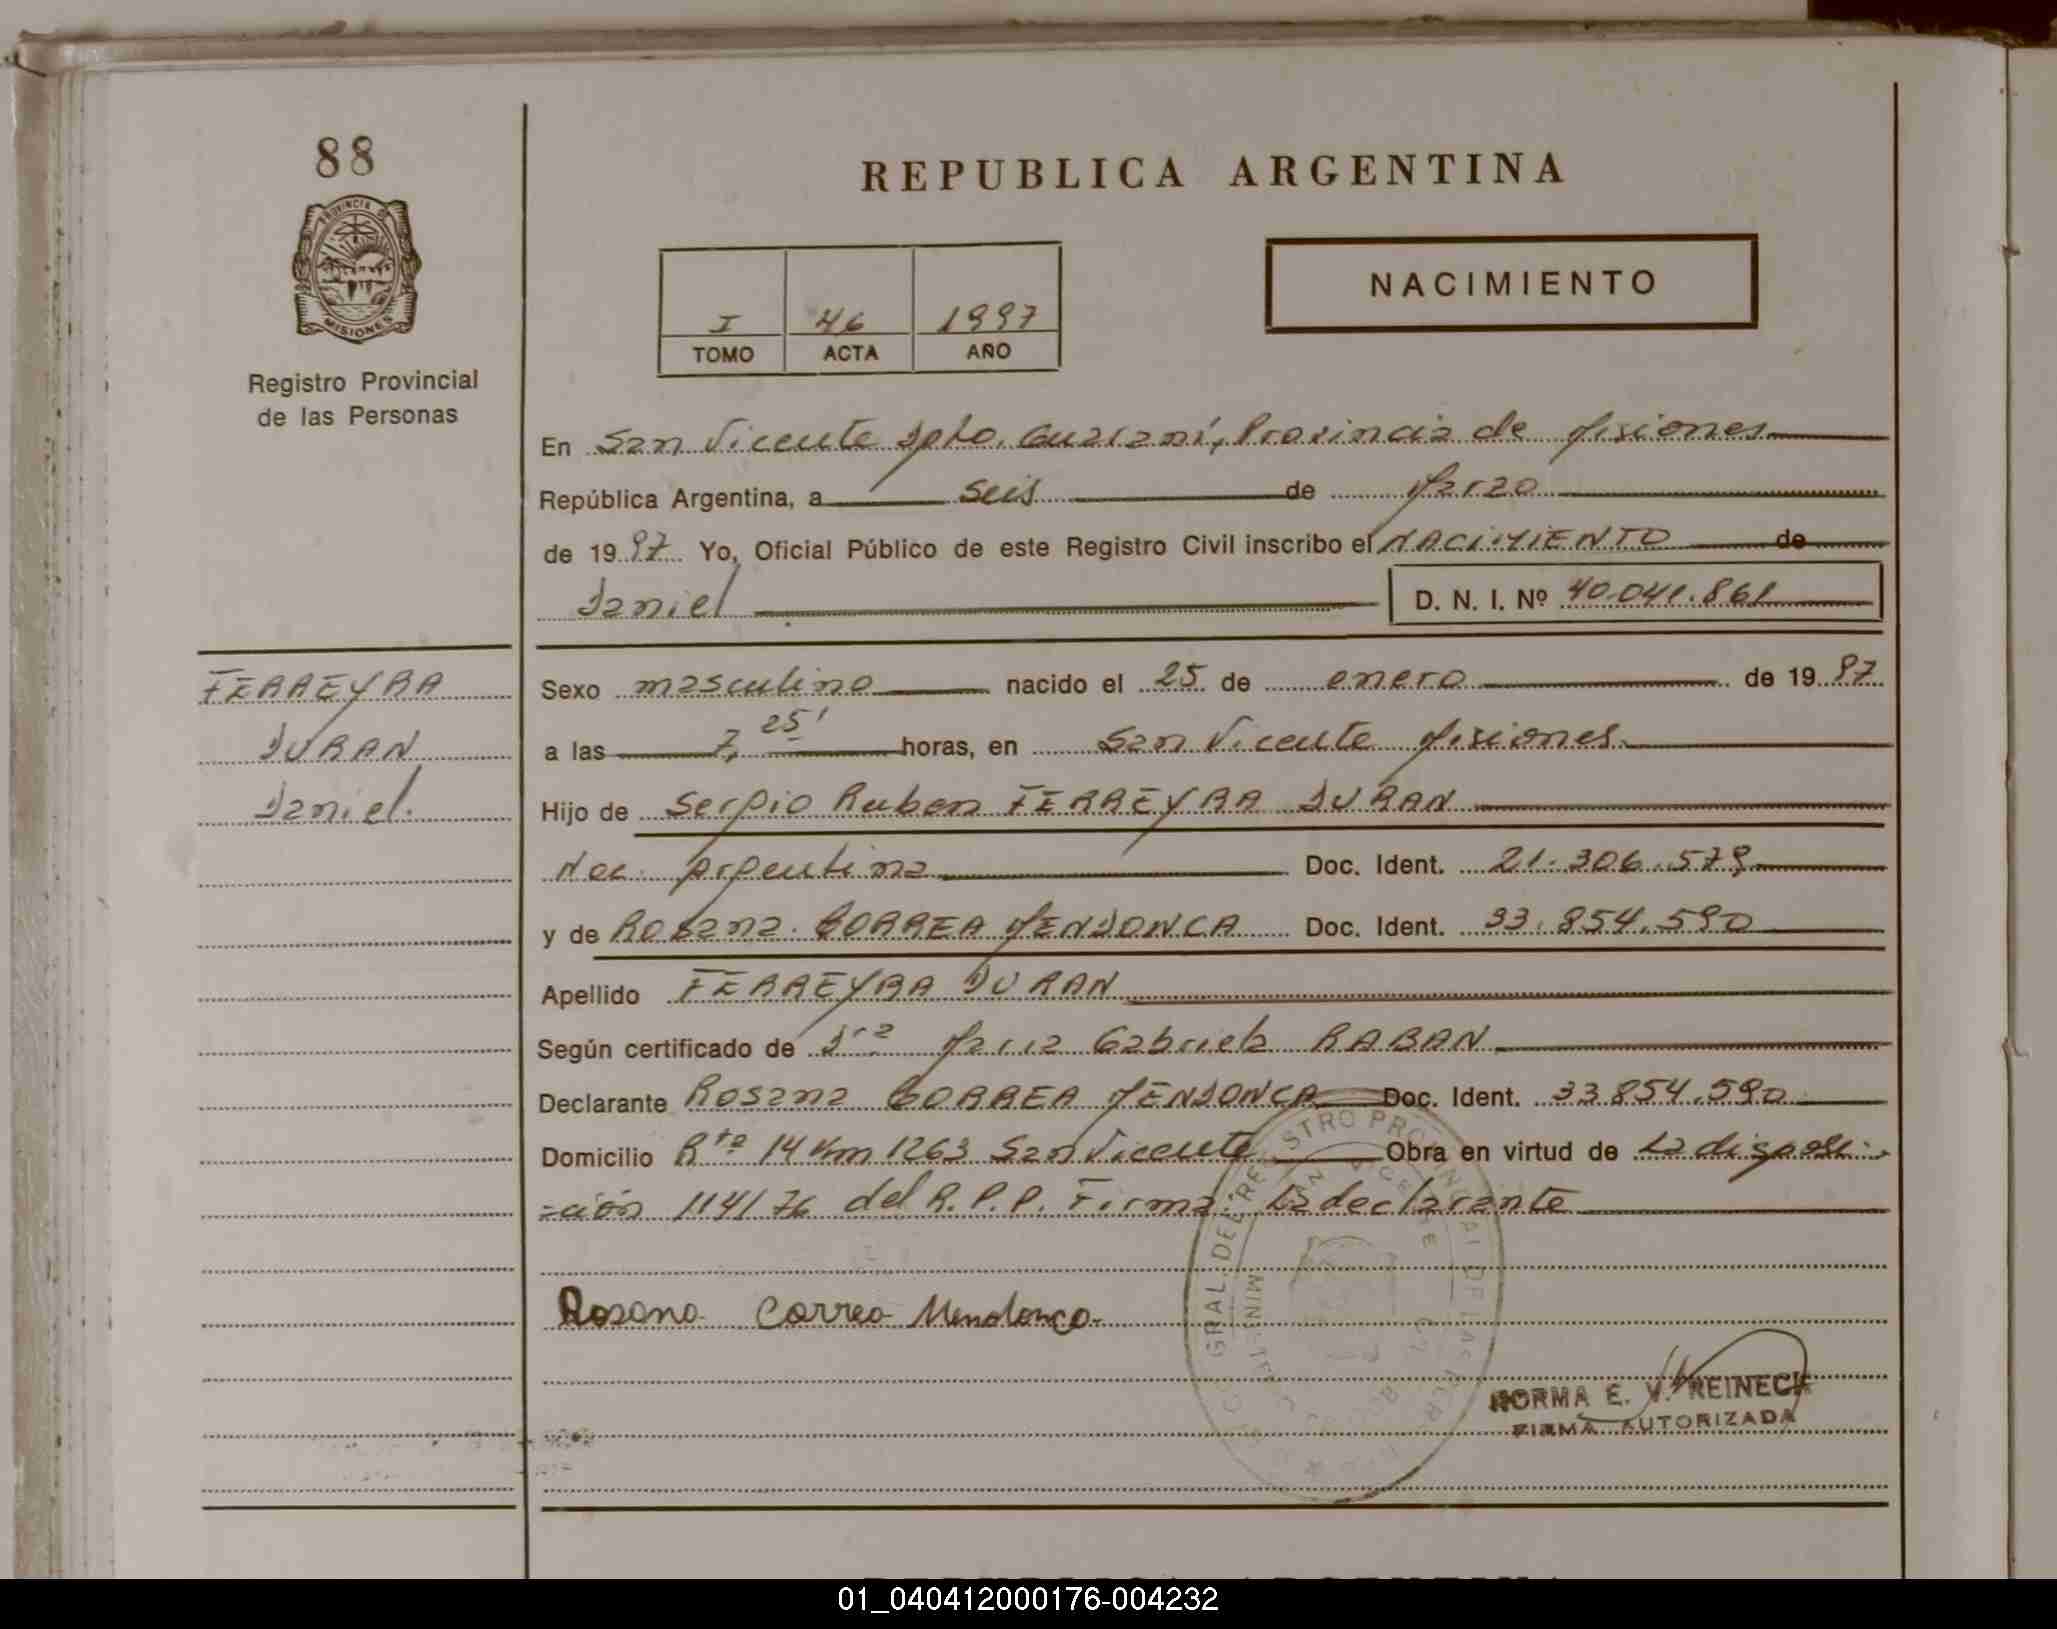 88
PROVINCIA DE
MISIONES
Registro Provincial
de las Personas
REPUBLICA ARGENTINA
NACIMIENTO
I 46 1997
TOMO ACTA AÑO
En San Vicente Dpto. Guaraní, Provincia de Misiones
República Argentina, a seis de Marzo
de 1997 Yo, Oficial Público de este Registro Civil inscribo el NACIMIENTO de
Daniel D. N. I. Nº 40.041.861
FERREYRA
DURAN
Daniel.
Sexo masculino nacido el 25 de enero de 1997
a las 7, 25' horas, en San Vicente Misiones
Hijo de Sergio Ruben FERREYRA DURAN
Nac. Argentina Doc. Ident. 21.306.579
y de Rosana CORREA MENDONCA Doc. Ident. 33.854.590
Apellido FERREYRA DURAN
Según certificado de Dra Maria Gabriela RABAN
Declarante Rosana CORREA MENDONCA Doc. Ident. 33.854.590
Domicilio Rta 14 Km 1263 San Vicente Obra en virtud de la disposi-
ción 114/76 del R.P.P. Firma: La declarante
Rosana Correa Mendonca
NORMA E. V. REINECK
FIRMA AUTORIZADA
01_040412000176-004232